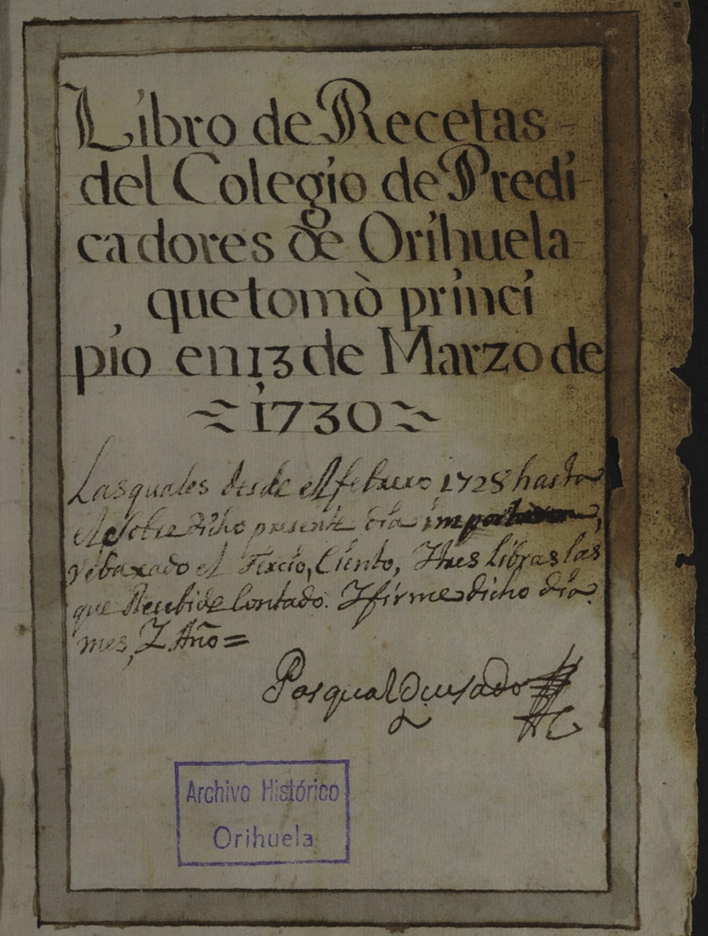 Libro de Recetas
del Colegio de Predi
cadores de Orihuela
que tomò princi
pio en 13 de Marzo de
1730
Lasquales desde el febrero 1728 hasta
el sobre dicho presente dia
rebaxado el Tercio, Ciento, Y tres Libras las
que Recebi de Contado. Y firme dicho dia
mes, Y Año=
Pasqual Quesado
Archivo Histórico
Orihuela